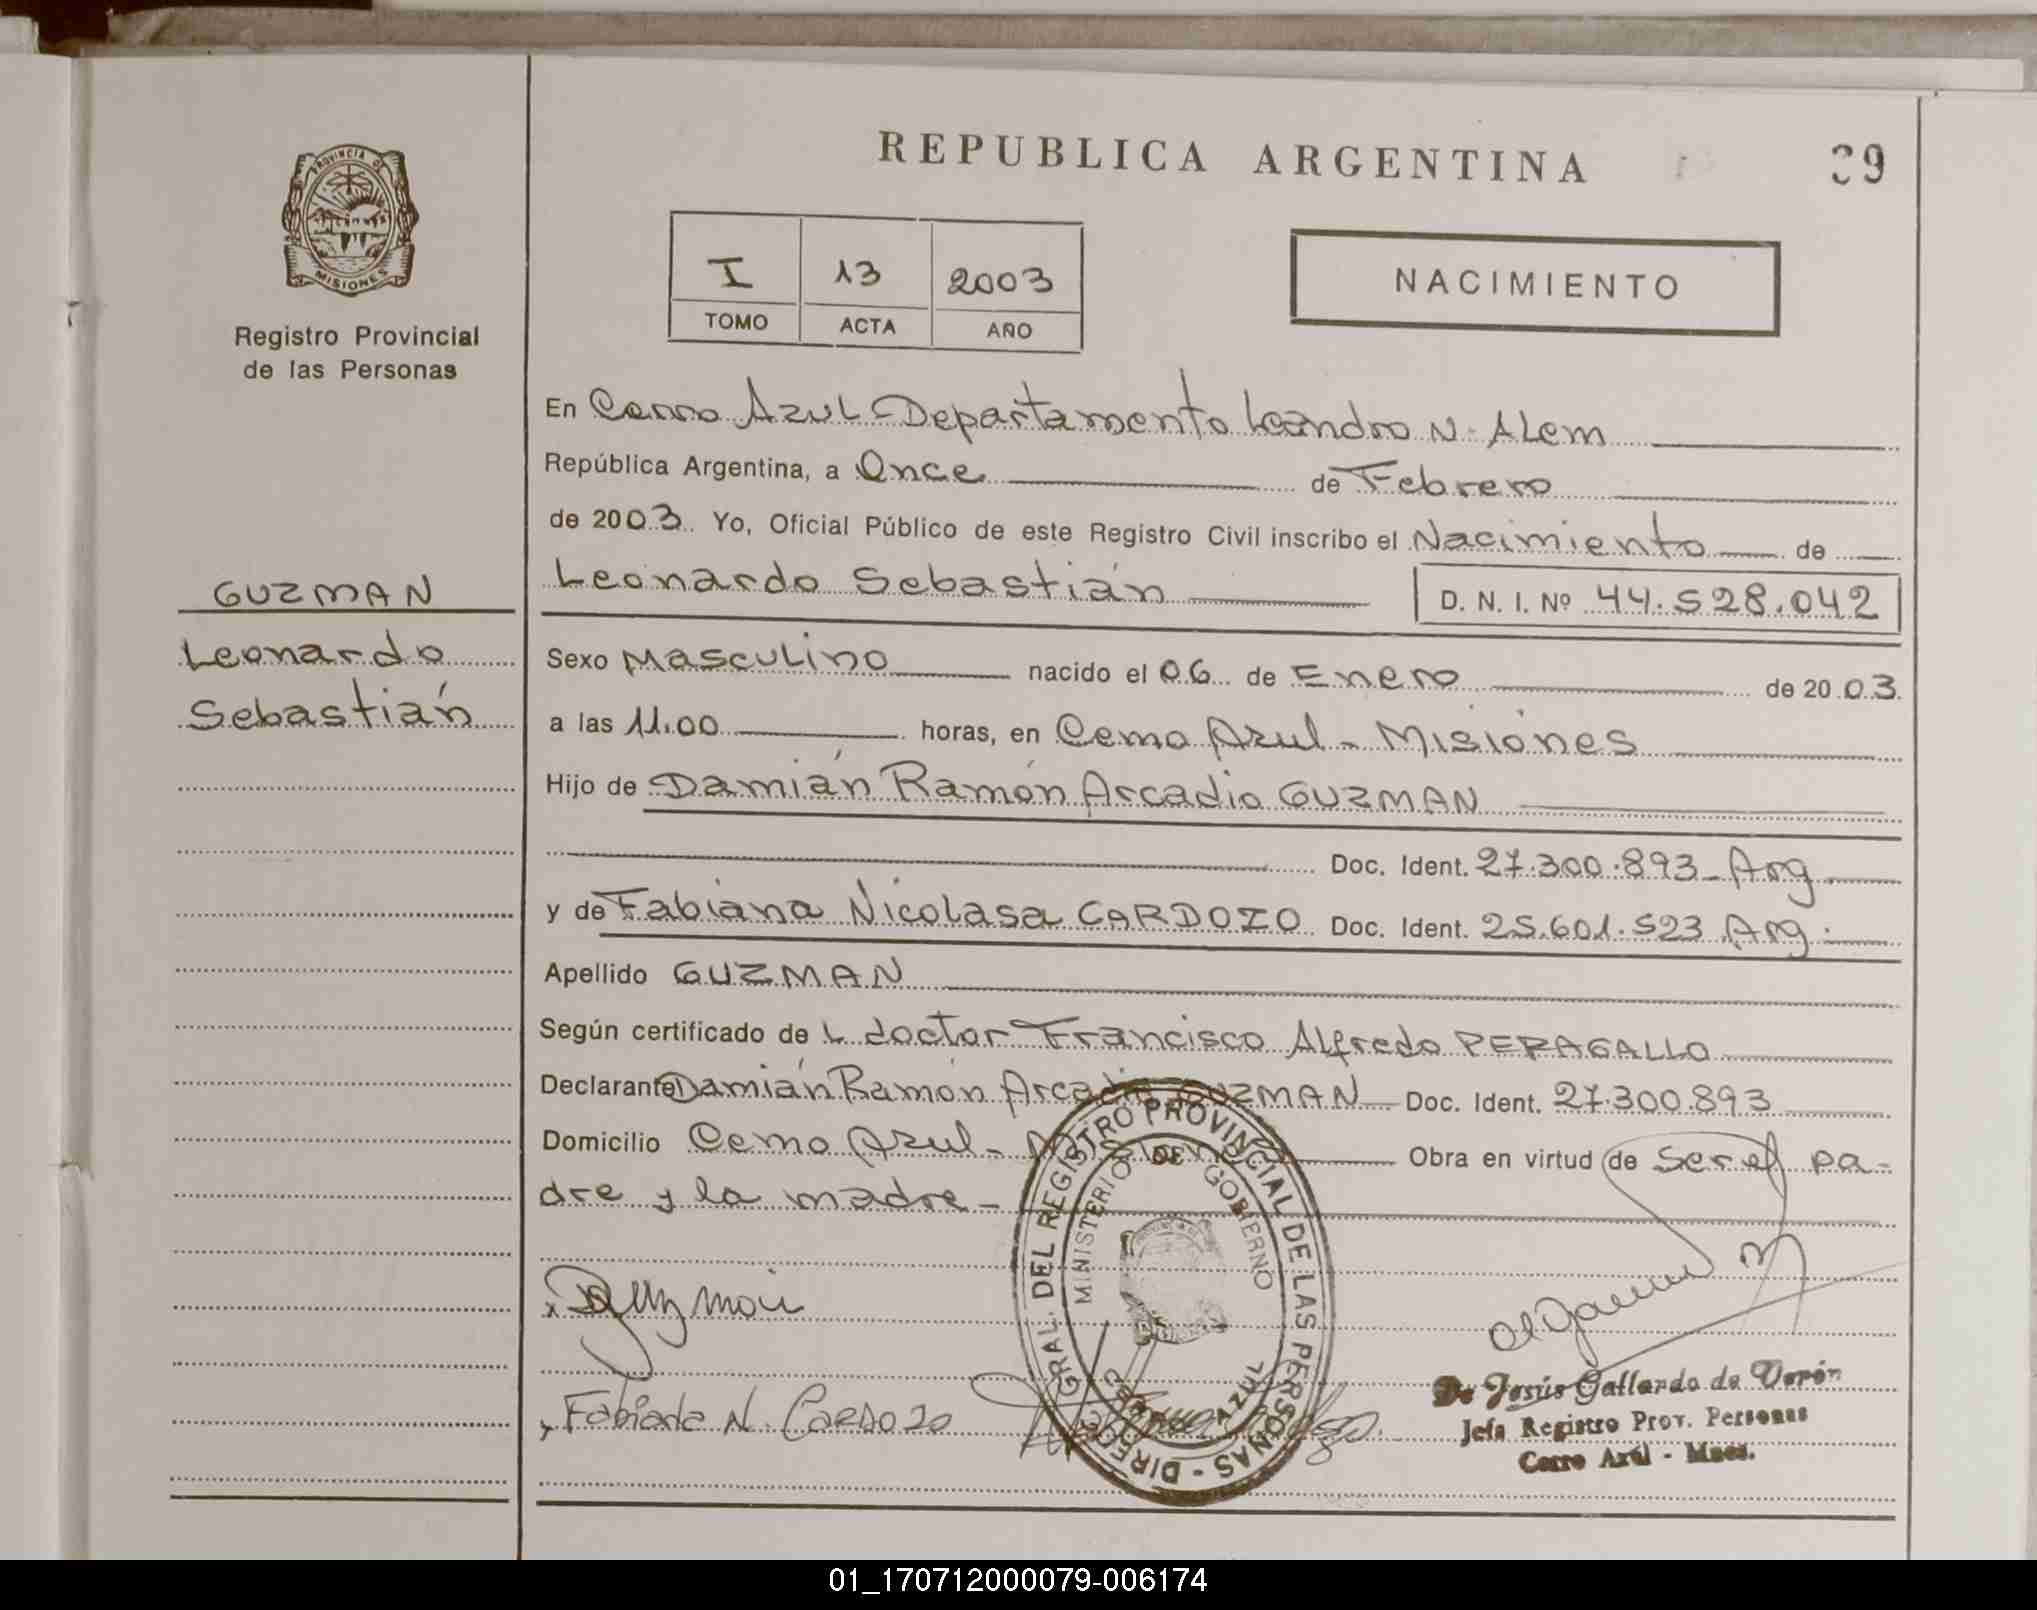 REPUBLICA ARGENTINA
39
PROVINCIA DE
MISIONES
Registro Provincial
de las Personas
I 13 2003
TOMO ACTA AÑO
NACIMIENTO
En Cerro Azul - Departamento Leandro N. Alem
República Argentina, a Once de Febrero
de 2003 Yo, Oficial Público de este Registro Civil inscribo el Nacimiento de
Leonardo Sebastián D. N. I. Nº 44.528.042
GUZMAN
Leonardo
Sebastián
Sexo Masculino nacido el 06 de Enero de 2003
a las 11.00 horas, en Cerro Azul - Misiones
Hijo de Damián Ramón Arcadio GUZMAN
Doc. Ident. 27.300.893 - Arg
y de Fabiana Nicolasa CARDOZO Doc. Ident. 25.601.523 Arg.
Apellido GUZMAN
Según certificado de l doctor Francisco Alfredo PERAGALLO
Declarante Damián Ramón Arcadio GUZMAN Doc. Ident. 27.300.893
Domicilio Cerro Azul - Misiones Obra en virtud de ser el pa-
dre y la madre -
DIREC. GRAL. DEL REGISTRO PROVINCIAL DE LAS PERSONAS
MINISTERIO DE GOBIERNO
AZUL
Fabiana N. Cardozo
De Jesús Gallardo de Verón
Jefa Registro Prov. Personas
Cerro Azul - Mnes.
01_170712000079-006174